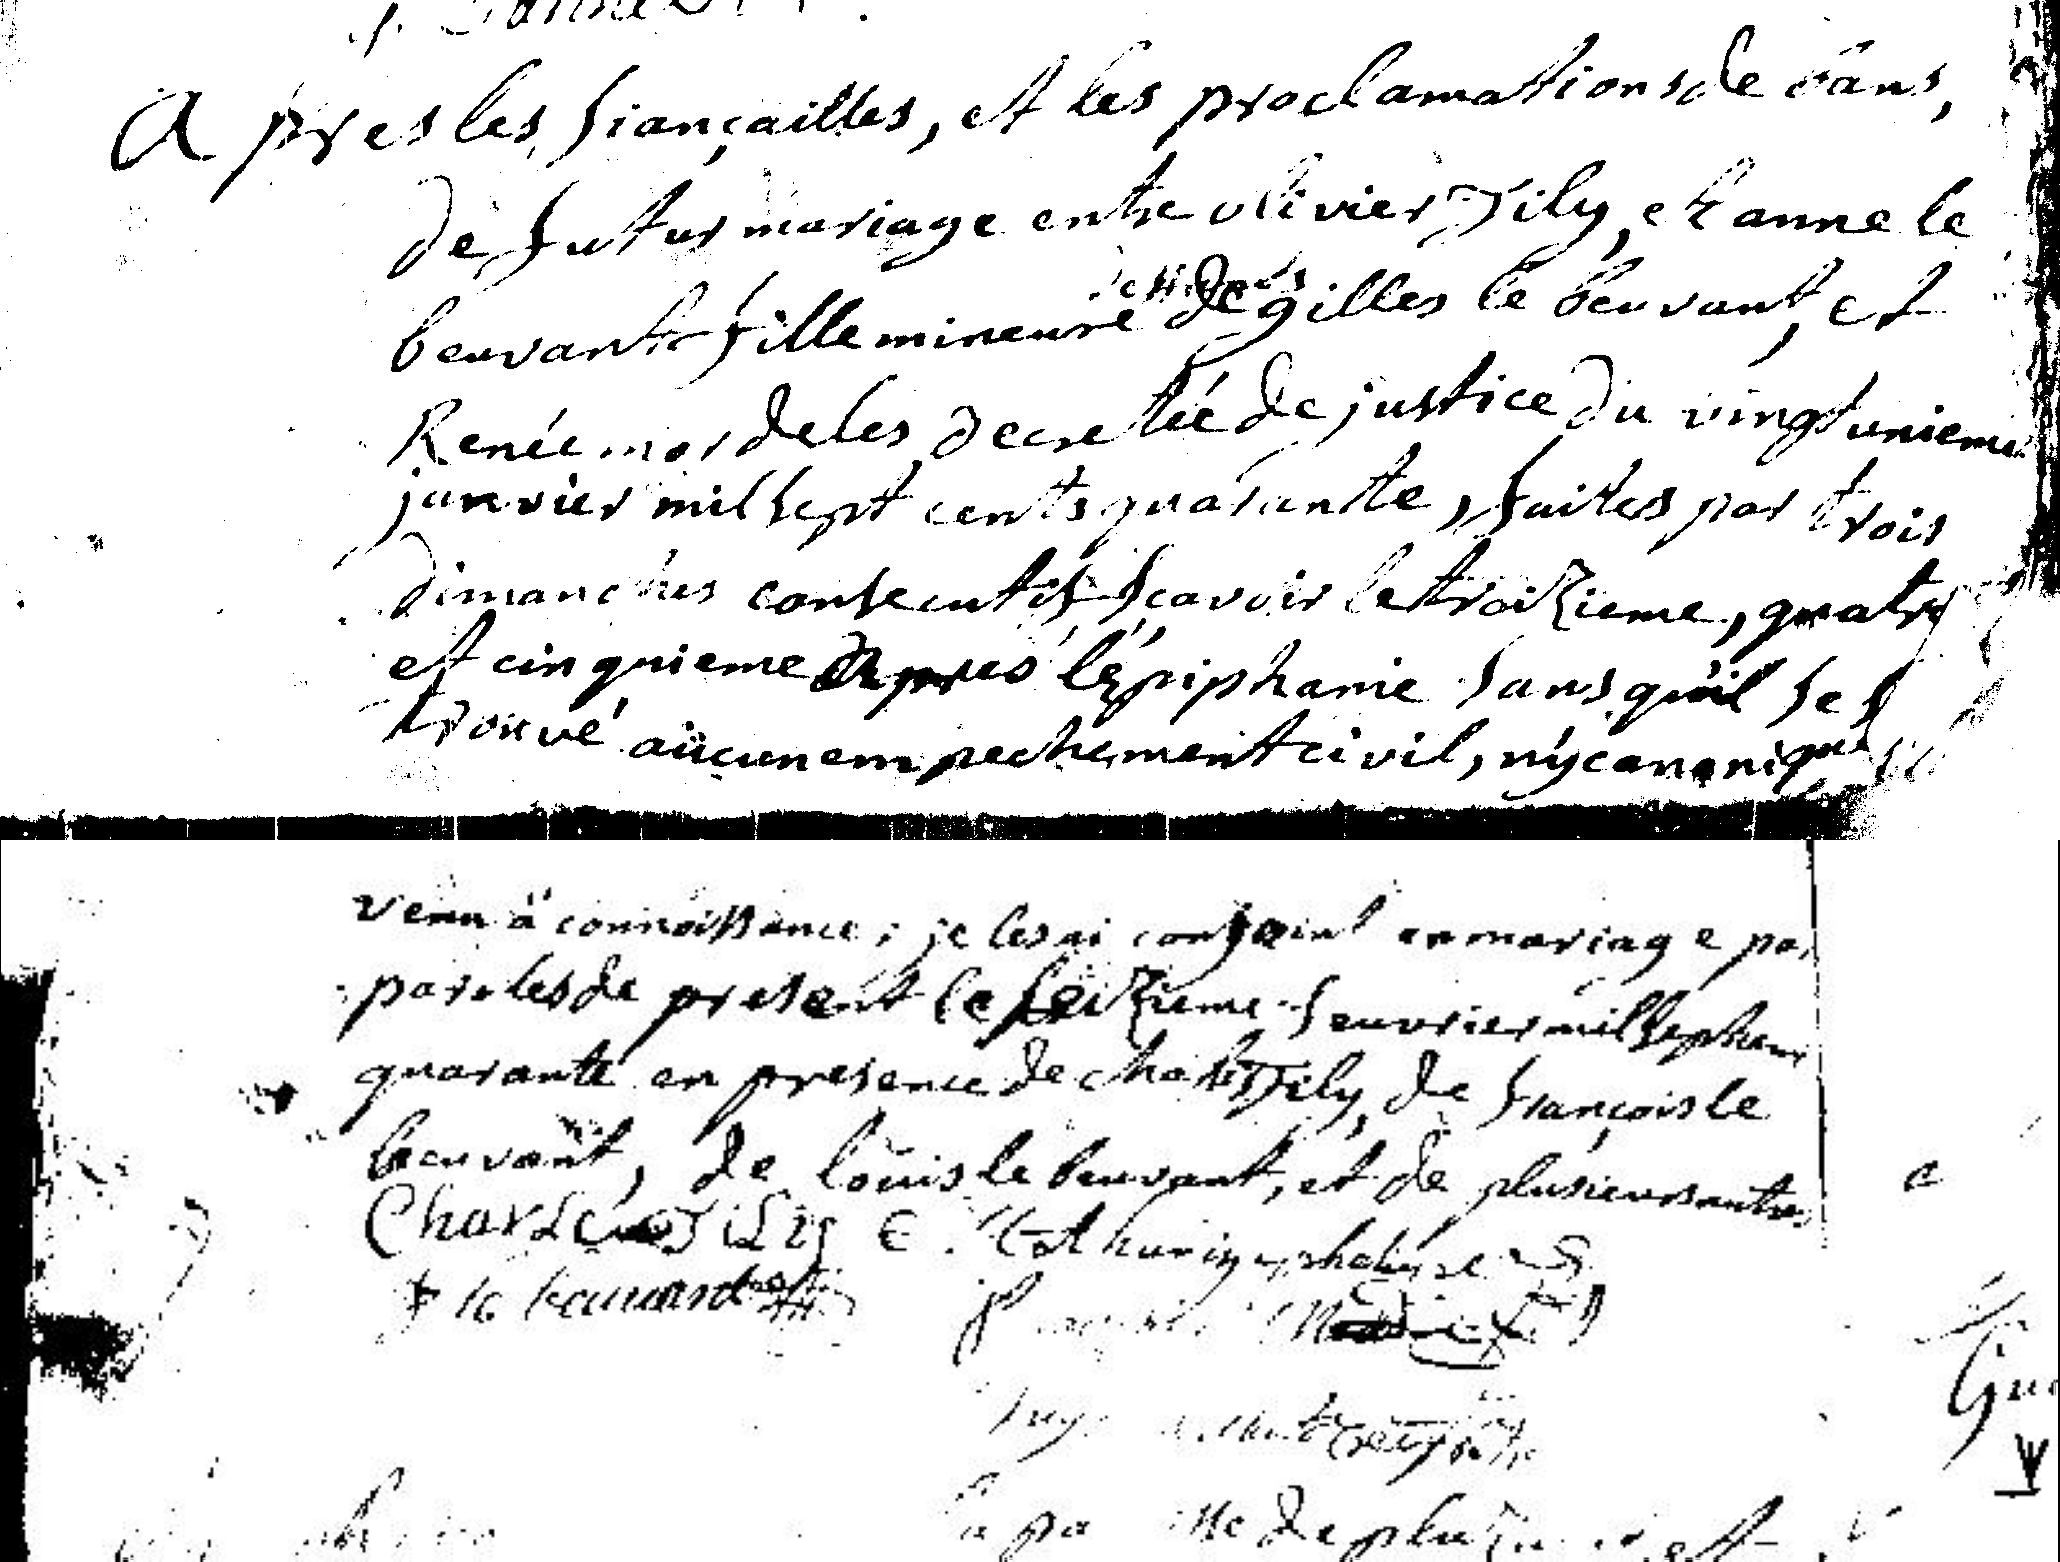 Apres les fiançailles, et les proclamations de bans,
de futur mariage entre olivier Tily, et anne le
beuvant fille mineure de gilles le beuvant, et
Renée mordeles decretée de justice du vingt unieme
janvier mil sept cents quarante, faites par trois
dimanches consecutifs, sçavoir le troizieme, quatr
et cinquieme apres l'épiphanie sans qu'il se s
trouvé aucun empechement civil, ny canonique
venu à connoissance; je les ai conjoint en mariage par
paroles de present le seizieme feuvrier mil sept cent
quarante en presence de charles Tily, de françois le
beuvant, de loüis le beuvant, et de plusieurs autres
Charles Tily
f le beuvant
a pa de plu